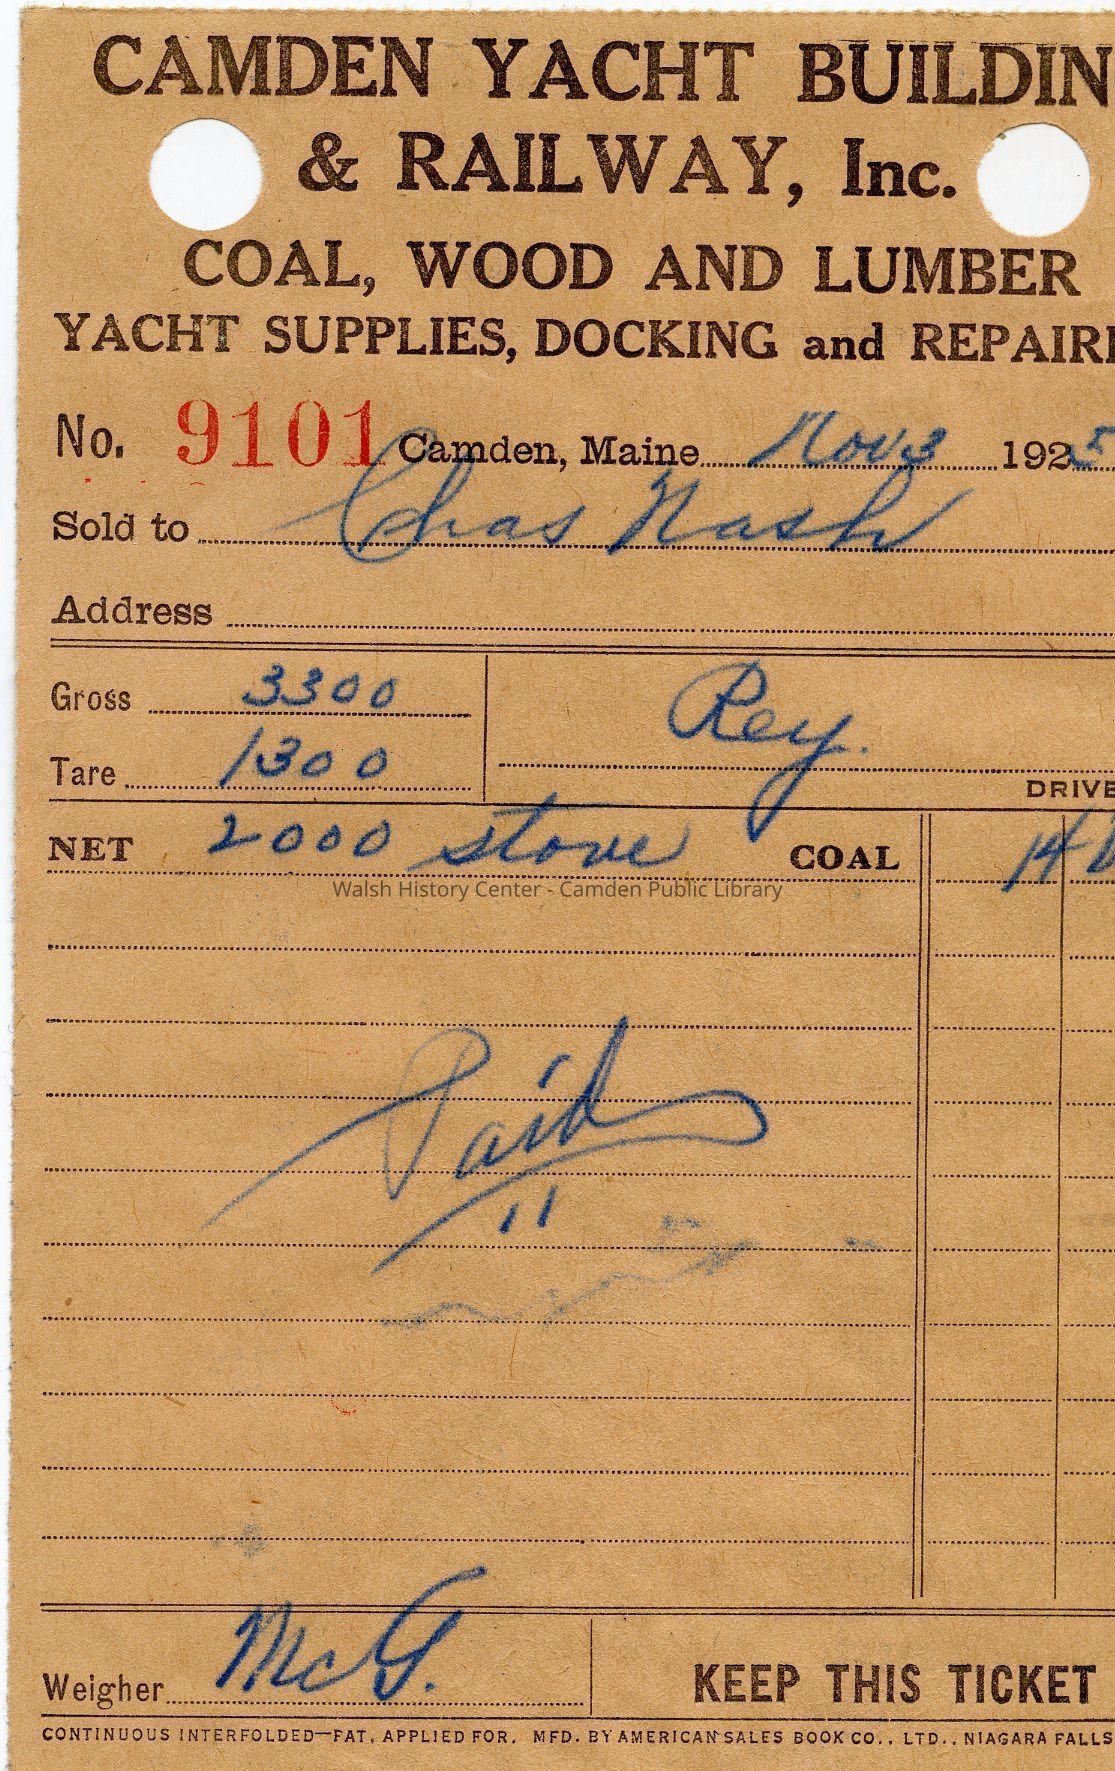 CAMDEN YACHT BUILDIN
& RAILWAY, Inc.
COAL, WOOD AND LUMBER
YACHT SUPPLIES, DOCKING and REPAIRI
No. 9101 Camden, Maine Nov 3 1925
Sold to Chas Nash
Address
Gross 3300
Rey.
Tare 1300
DRIVE
NET 2000 stove COAL 14 0
Walsh History Center - Camden Public Library
Paid
11
Weigher McG.
KEEP THIS TICKET
CONTINUOUS INTERFOLDED—PAT. APPLIED FOR. MFD. BY AMERICAN SALES BOOK CO., LTD., NIAGARA FALLS